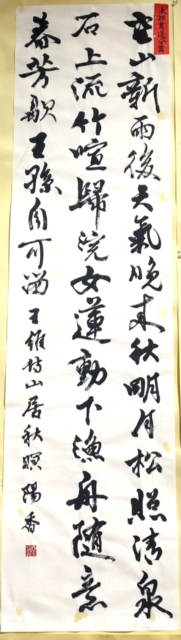 空山新雨後天氣晚来秋明月松照清泉
石上流竹喧歸浣女蓮動下漁舟隨意
春芳歇王孫自可留 王維詩山居秋暝 陽香